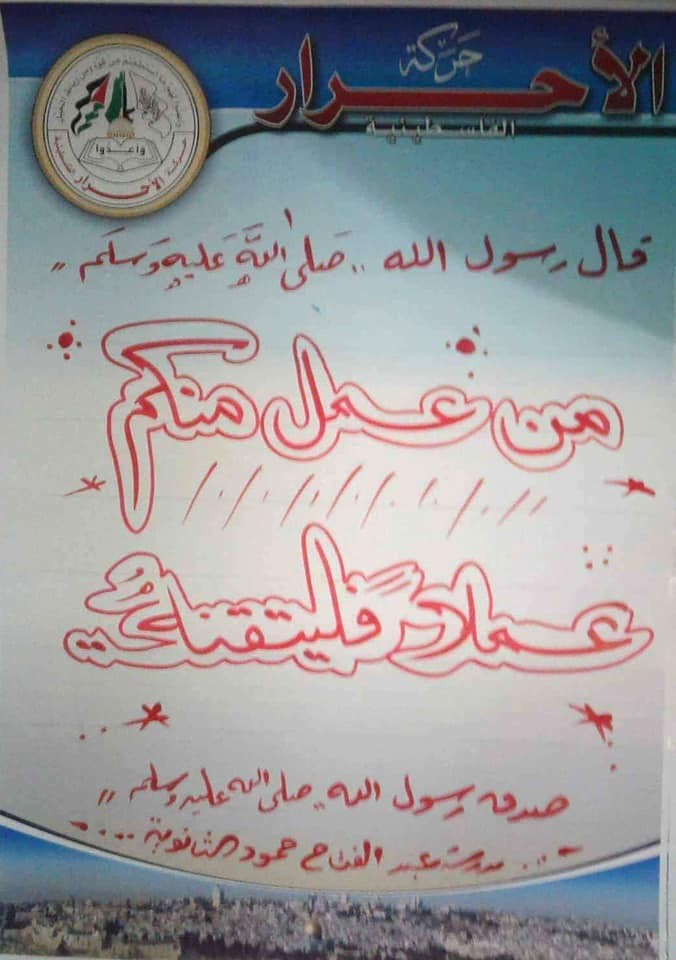 حركة
الأحرار
الفلسطينية
واعدوا
حركة الأحرار الفلسطينية
قال رسول الله .. صَلى اللهَِّ عَليهِ وَسلَم ,,
من عمل منكم
عملاً فليتقنهُ
صدق رسول الله صلى الله عليه وسلم ,,
... مدرسة عبد الفتاح حمود الثانوية ...